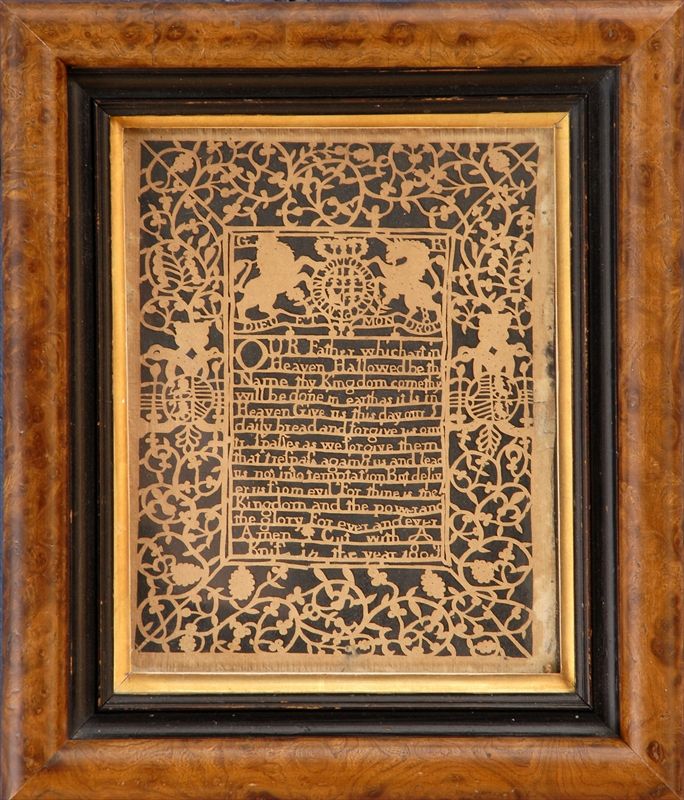 G R
DIEU ET MON DROI
OUR Father whichart in
Heaven Hallowed be th
Name thy Kingdom come thy
will be done in earth as it is in
Heaven Give us this day our
daily bread and forgive us our
trespasses as we forgive them
that trespass against us and lead
us not into temptation but deliv
er us from evil For thine is the
Kingdom and the power and
the glory For ever and ever
Amen Cut with A
Knife in the year